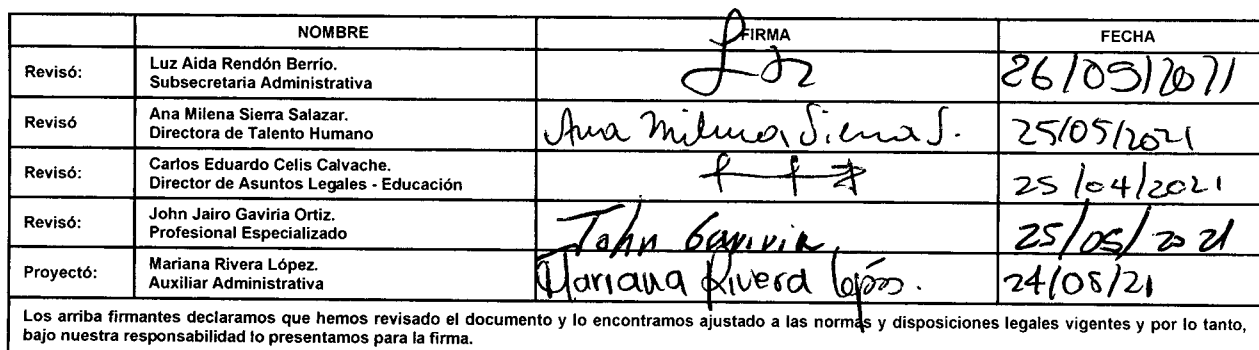 NOMBRE FIRMA FECHA
Revisó: Luz Aida Rendón Berrío.
Subsecretaria Administrativa 26/05/2021
Revisó Ana Milena Sierra Salazar.
Directora de Talento Humano Ana Milena Sierra S. 25/05/2021
Revisó: Carlos Eduardo Celis Calvache.
Director de Asuntos Legales - Educación 25/04/2021
Revisó: John Jairo Gaviria Ortiz.
Profesional Especializado John Gaviria 25/05/2021
Proyectó: Mariana Rivera López.
Auxiliar Administrativa Mariana Rivera López. 24/05/21
Los arriba firmantes declaramos que hemos revisado el documento y lo encontramos ajustado a las normas y disposiciones legales vigentes y por lo tanto,
bajo nuestra responsabilidad lo presentamos para la firma.